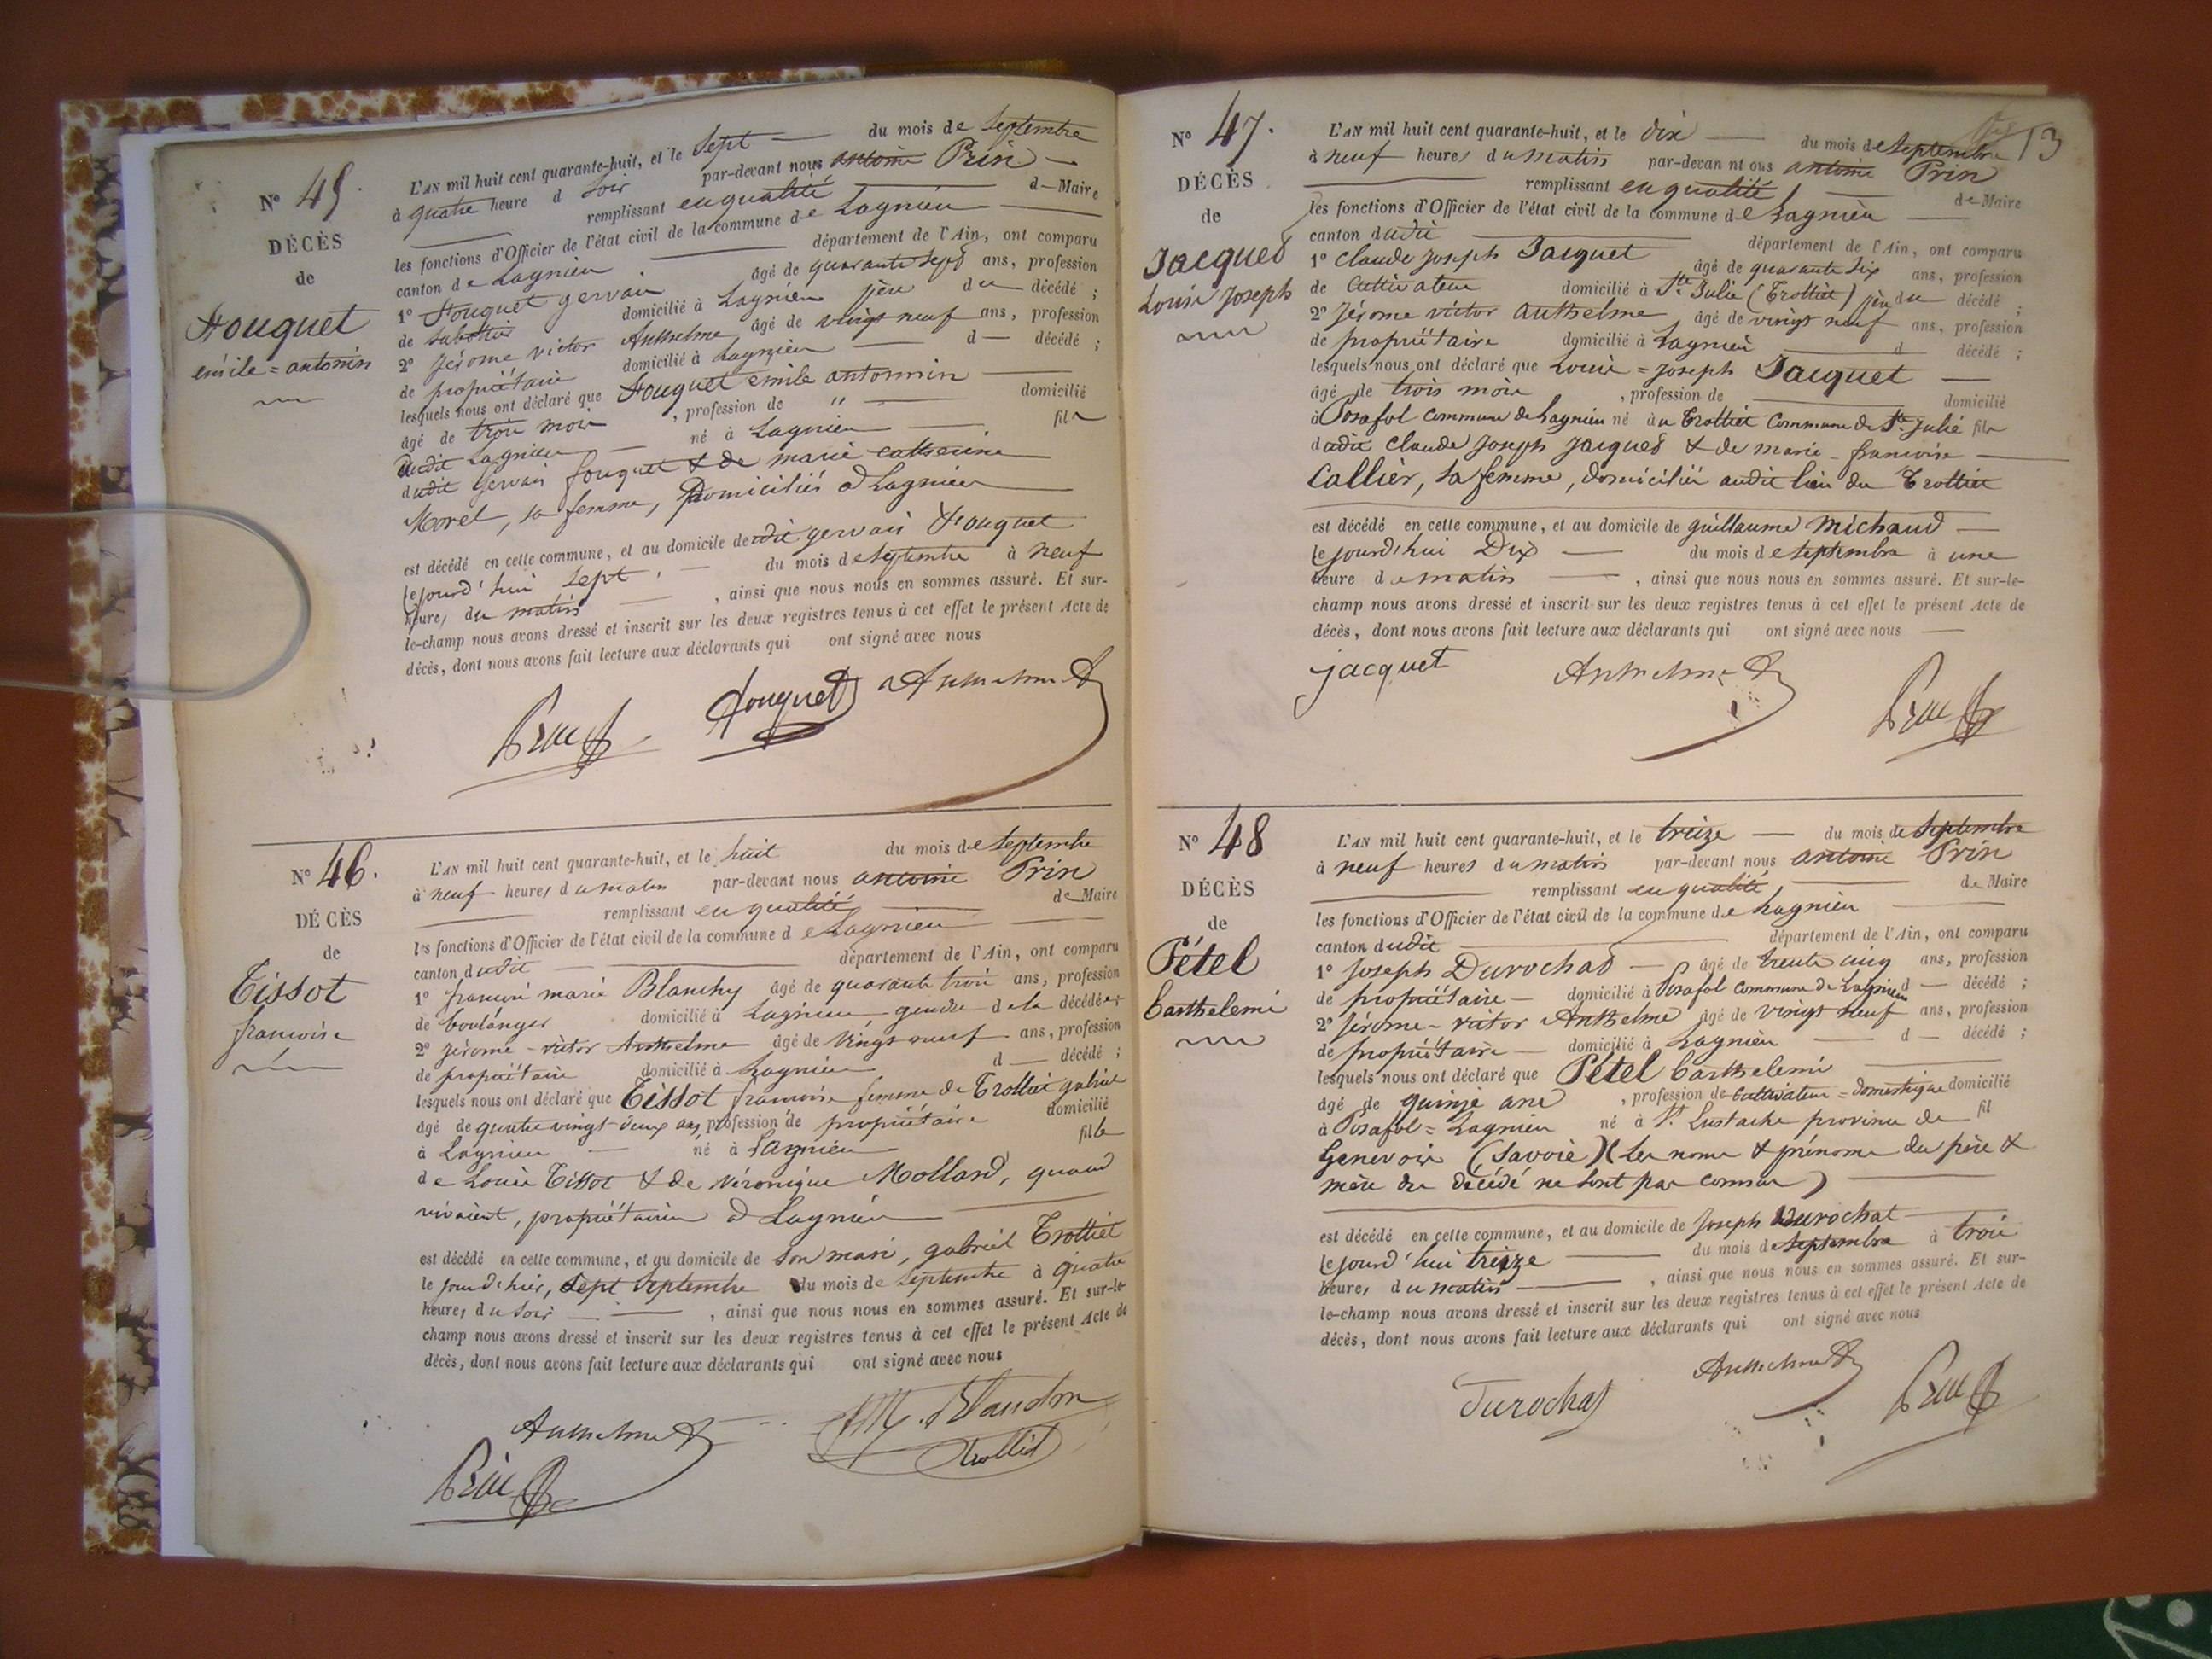 N° 45.
DÉCÈS
de
Fouquet
emile = antonin
L'AN mil huit cent quarante-huit, et le Sept du mois de Septembre
à quatre heure d soir par-devant nous antoine Prin
remplissant en qualité d Maire
les fonctions d'Officier de l'état civil de la commune de Lagnieu
canton de Lagnieu département de l'Ain, ont comparu
1° Fouquet gervais âgé de quarante sept ans, profession
de sabotier domicilié à Lagnieu père du décédé ;
2° Jérome victor Anthelme âgé de vingt neuf ans, profession
de propriétaire domicilié à Lagnieu d décédé ;
lesquels nous ont déclaré que Fouquet emile antonnin
âgé de trois mois , profession de " domicilié
audit Lagnieu né à Lagnieu fils
dudit Gervais fouquet & de marie catherine
Morel, sa femme, Domiciliés à Lagnieu
est décédé en cette commune, et au domicile dudit gervais Fouquet
cejourd'hui Sept du mois de Septembre à neuf
heures du matin , ainsi que nous nous en sommes assuré. Et sur-
le-champ nous avons dressé et inscrit sur les deux registres tenus à cet effet le présent Acte de
décès, dont nous avons fait lecture aux déclarants qui ont signé avec nous
Prin Fouquet Anthelme
N° 46.
DÉCÈS
de
Tissot
francoise
L'AN mil huit cent quarante-huit, et le huit du mois de Septembre
à neuf heures du matin par-devant nous antoine Prin
remplissant en qualité de Maire
les fonctions d'Officier de l'état civil de la commune de Lagnieu
canton dudit département de l'Ain, ont comparu
1° francois marie Blanchy âgé de quarante trois ans, profession
de boulanger domicilié à Lagnieu, gendre de la décédée ;
2° Jérome - victor Anthelme âgé de vingt neuf ans, profession
de propriétaire domicilié à Lagnieu d décédé ;
lesquels nous ont déclaré que Tissot francoise femme de Trolliet gabriel
âgé de quatre vingt deux ans, profession de propriétaire domicilié
à Lagnieu né à Lagnieu fille
de Louis Tissot & de Véronique Mollard, quand
vivaient, propriétaires à Lagnieu
est décédé en cette commune, et au domicile de son mari, gabriel Trolliet
le jour d'hier, Sept Septembre du mois de Septembre à quatre
heures du soir , ainsi que nous nous en sommes assuré. Et sur-le-
champ nous avons dressé et inscrit sur les deux registres tenus à cet effet le présent Acte de
décès, dont nous avons fait lecture aux déclarants qui ont signé avec nous
Anthelme
Trolliet
Prin
13
N° 47.
DÉCÈS
de
Jacques
Louis Joseph
L'AN mil huit cent quarante-huit, et le dix du mois de Septembre
à neuf heures du matin par-devan nt ous antoine Prin
remplissant en qualité de Maire
les fonctions d'Officier de l'état civil de la commune de Lagnieu
canton dudit département de l'Ain, ont comparu
1° Claude Joseph Jacquet âgé de quarante six ans, profession
de Cultivateur domicilié à Ste Julie (Trolliet) père du décédé ;
2° Jérome victor Anthelme âgé de vingt neuf ans, profession
de propriétaire domicilié à Lagnieu d décédé ;
lesquels nous ont déclaré que Louis = Joseph Jacquet
âgé de trois mois , profession de domicilié
à Posafol commune de Lagnieu né au Trolliet Commune de Ste Julie fils
dudit Claude Joseph Jacques & de marie - francoise
Callier, sa femme, domiciliés audit lieu du Trolliet
est décédé en cette commune, et au domicile de guillaume Michaud
cejourd'hui Dix du mois de Septembre à une
heure du matin , ainsi que nous nous en sommes assuré. Et sur-le-
champ nous avons dressé et inscrit sur les deux registres tenus à cet effet le présent Acte de
décès, dont nous avons fait lecture aux déclarants qui ont signé avec nous
jacquet Anthelme Prin
N° 48
DÉCÈS
de
Pétel
barthelemi
L'AN mil huit cent quarante-huit, et le treize du mois de Septembre
à neuf heures du matin par-devant nous antoine Prin
remplissant en qualité de Maire
les fonctions d'Officier de l'état civil de la commune de Lagnieu
canton dudit département de l'Ain, ont comparu
1° Joseph Durochat âgé de trente cinq ans, profession
de propriétaire domicilié à Posafol commune de Lagnieu d décédé ;
2° Jérome - victor Anthelme âgé de vingt neuf ans, profession
de propriétaire domicilié à Lagnieu d décédé ;
lesquels nous ont déclaré que Pétel barthelemi
âgé de quinze ans , profession de Cultivateur = domestique domicilié
à Posafol = Lagnieu né à St. Eustache province de fil
Genevois (Savoie) (Les noms & prénoms du père &
mère du décédé ne sont pas connus)
est décédé en cette commune, et au domicile de Joseph Durochat
cejourd'hui treize du mois de Septembre à trois
heures du matin , ainsi que nous nous en sommes assuré. Et sur-
le-champ nous avons dressé et inscrit sur les deux registres tenus à cet effet le présent Acte de
décès, dont nous avons fait lecture aux déclarants qui ont signé avec nous
Durochat Anthelme Prin